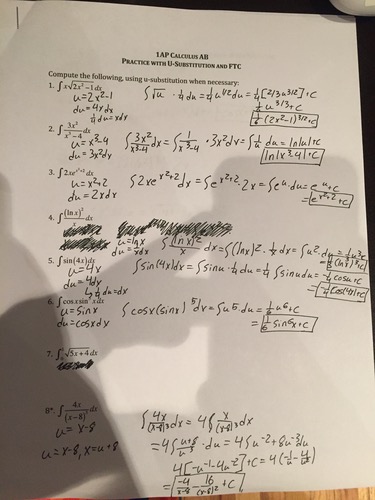 1AP CALCULUS AB
PRACTICE WITH U-SUBSTITUTION AND FTC
Compute the following, using u-substitution when necessary:
1. ∫x√(2x²-1)dx
u=2x²-1
du=4xdx
¼du=xdx
∫√u · ¼du = ¼∫u^(1/2)du = ¼[2/3u^(3/2)]+C
1/6(2x²-1)^(3/2)+C
2. ∫3x²/(x³-4)dx
u=x³-4
du=3x²dx
∫3x²/(x³-4)dx = ∫1/(x³-4) · 3x²dx = ∫1/u du = ln|u|+C
ln|x³-4|+C
3. ∫2xe^(x²+2)dx
u=x²+2
du=2xdx
∫2xe^(x²+2)dx = ∫e^(x²+2) · 2x = ∫e^u · du = e^u+C
= e^(x²+2)+C
4. ∫(lnx)²/x dx
u=lnx
du=1/x dx
∫(lnx)²/x dx = ∫(lnx)² · 1/x dx = ∫u² · du = 1/3u³
1/3(lnx)³+C
5. ∫sin(4x)dx
u=4x
du=4dx
¼du=dx
∫sin(4x)dx = ∫sinu · ¼du = ¼∫sinudu = -¼cosu+C
= -¼cos(4x)+C
6. ∫cosxsin⁵xdx
u=sinx
du=cosxdx
∫cosx(sinx)⁵dx = ∫u⁵·du = 1/6u⁶+C
= 1/6sin⁶x+C
7. √(5x+4)dx
8*. ∫4x/(x-8)³dx
u=x-8
u=x-8, x=u+8
∫4x/(x-8)³dx = 4∫x/(x-8)³dx
= 4∫(u+8)/u³ · du = 4∫u⁻²+8u⁻³du
4[-u⁻¹-4u⁻²]+C = 4(-1/u-4/u²)
= -4/(x-8) - 16/(x-8)²+C